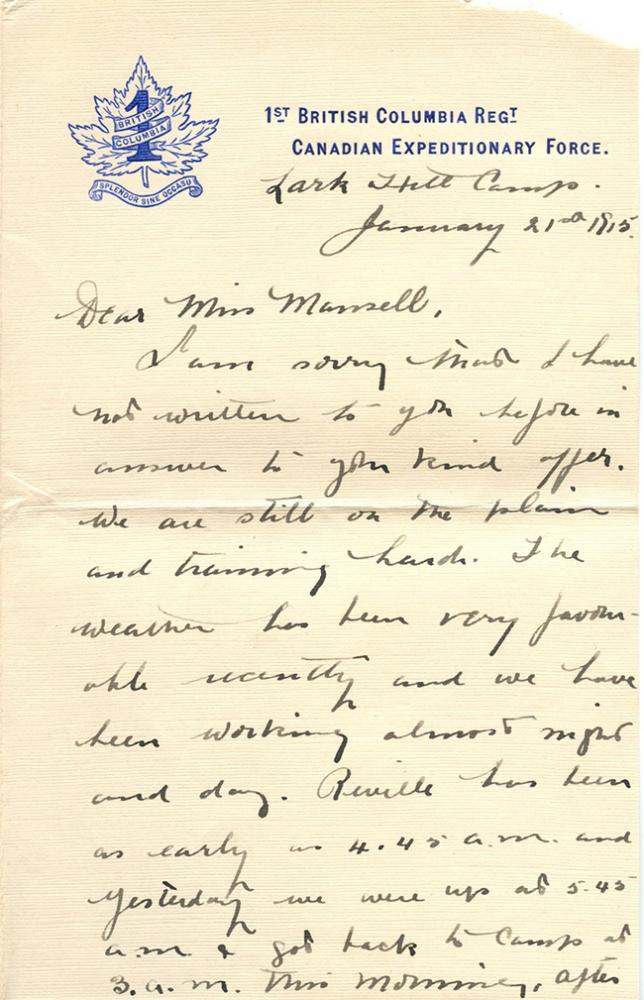 1
BRITISH
COLUMBIA
SPLENDOR SINE OCCASU
1ST BRITISH COLUMBIA REGT
CANADIAN EXPEDITIONARY FORCE.
Lark Hill Camp.
January 21st 1915.
Dear Miss Mansell,
I am sorry that I have
not written to you before in
answer to your kind offer.
We are still on the plain
and training hard. The
weather has been very favour-
able recently and we have
been working almost night
and day. Reville has been
as early as 4.45 a.m. and
yesterday we were up at 5.45
a.m. & got back to Camp at
3.a.m. this morning, after